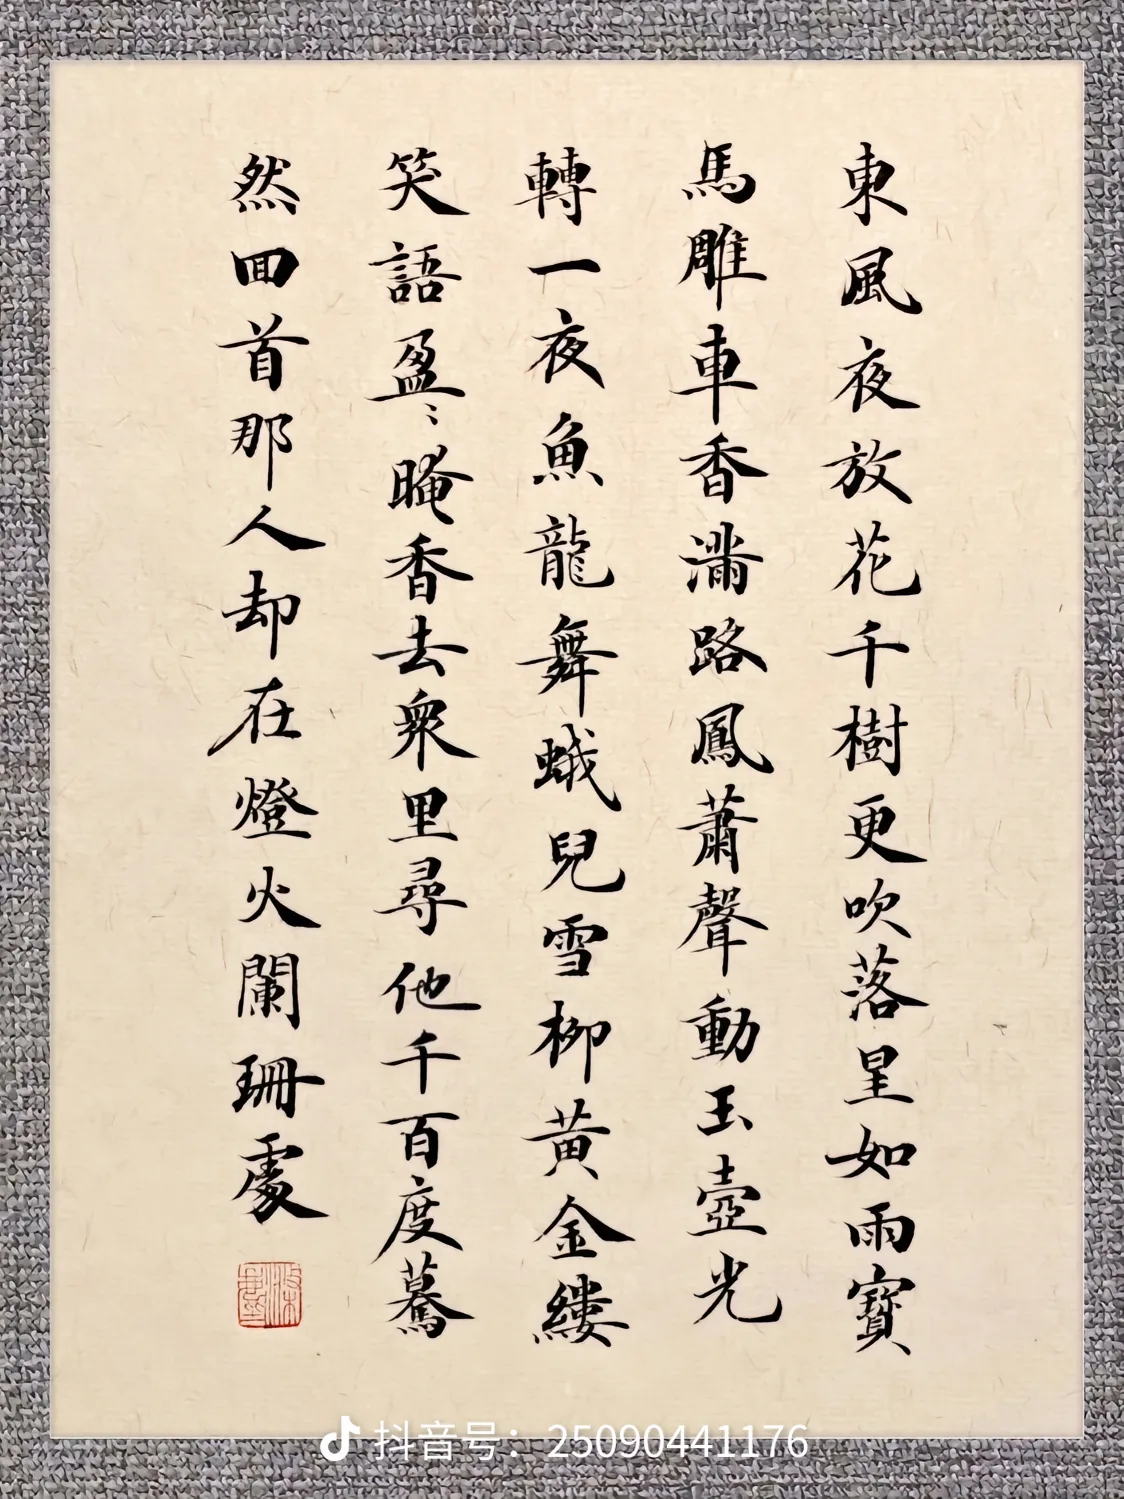 東風夜放花千樹更吹落星如雨寶
馬雕車香滿路鳳蕭聲動玉壺光
轉一夜魚龍舞蛾兒雪柳黃金縷
笑語盈〻晻香去衆里尋他千百度驀
然回首那人却在燈火闌珊處
抖音号：25090441176